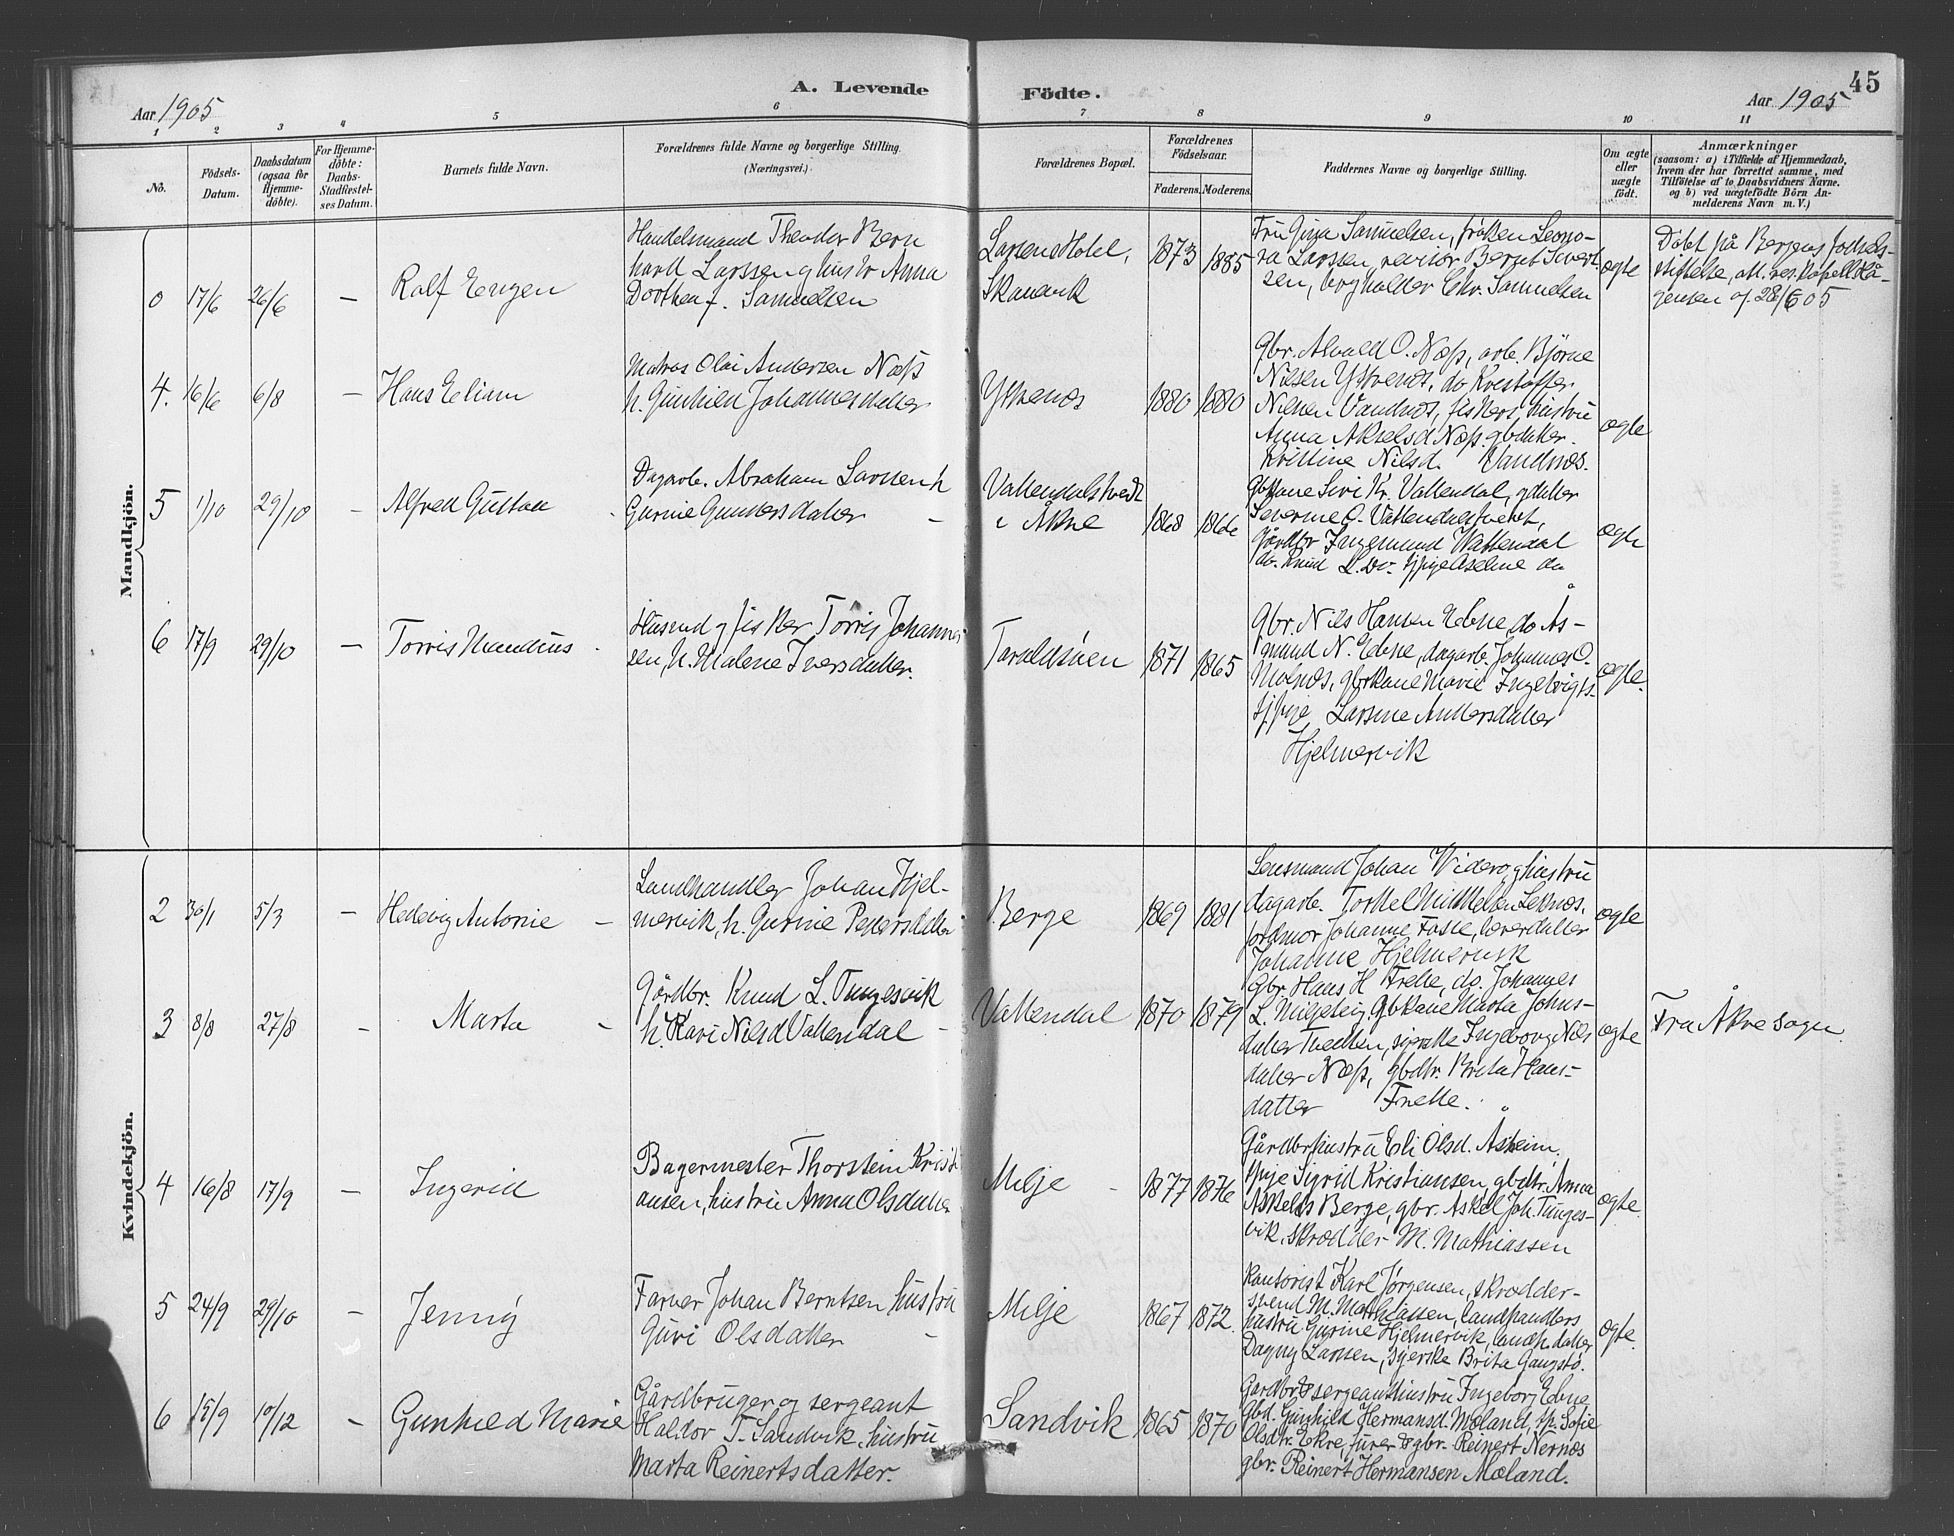 45
A. Levende Födte.
Aar 1905
Aar 1905
1 2 3 4 5 6 7 8 9 10 11
No.
Födsels-
Datum.
Daabsdatum
(ogsaa for
Hjemme-
døbte).
For Hjemme-
døbte:
Daabs-
Stadfæstel-
ses Datum.
Barnets fulde Navn.
Forældrenes fulde Navne og borgerlige Stilling.
(Næringsvei.)
Forældrenes Bopæl.
Forældrenes
Födselsaar.
Faderens. Moderens.
Faddernes Navne og borgerlige Stilling.
Om ægte
eller
uægte
födt.
Anmærkninger
(saasom: a) i Tilfælde af Hjemmedaab,
hvem der har forrettet samme, med
Tilföielse af to Daabsvidners Navne.
og b) ved uægtefödte Börn An-
melderens Navn m. V.)
Mandkjön.
0 17/6 26/6 —
Rolf Eugen
Handelsmand Theodor Bern
hard Larssen og hustr Anna
Dorthea f. Samuelsen
Larsens Hotel,
Skanevik
1873 1885
Fru Gina Samuelsen, frøken Leono-
ra Larssen, revisor Berent Sivert
sen, Chr. Samuelsen
ægte
Döbt på Bergens fødsels-
stiftelse, att. res. kapell Hå-
gensen af 28/6 05
4. 16/6 6/8 —
Hans Eliam
Matros Olai Andersen Næss
h. Gunhild Johannesdatter
Ytrenes
1880 1880
Gbr. Alvald O. Næss, arb. Björne
Nilsen do Kristoffer
Nilsen Vandnes, fiskers hustru
Anna Akselsd Næss. gbdatter.
Kristine Nilsd. Vandnes.
ægte
5 1/10 29/10 -
Alfred Gustav
Dagarb. Abraham Larssen h
Gurine Gundersdatter
Vattendalstvedt
i Åkre
1868 1866
Gbkone Siri Kr. Vattendal, gdatter
Severine O. Vattendalstvedt,
Gårdbr Ingemund Vattendal
do. Knud L. Do. pige Aseline do
ægte
6 17/9 29/10 —
Torris Mandius
Husmd og fisker Torris Johannes
sen, h. Malene Iversdatter.
Taraldsöen
1871 1865
Gbr. Nils Hansen Ebne, do Ås-
mund N. Ebne, dagarb. Johannes O.
Molnes, gbrkone Marie Ingebrigts-
pige Larsine Andersdatter
Hjelmervik
ægte.
Kvindekjön.
2 30/1 5/3 —
Hedevig Antonie
Landhandler Johan Hjel-
mervik, h. Gurine Pedersdatter
Berge
1869 1881
Lensmand Johan Viderø og hustru
dagarb. Torkel Leknes,
jordmor Johanne Fosse, lærerdatter
Johanne Hjelmervik
ægte
3 8/8 27/8 -
Marta
Gårdbr. Knud L. Tungesvik
h. Kari Nilsd Vattendal
Vattendal
1870 1879
Gbr Hans H Frette, do. Johannes
L. Miljeteig, Gbkone Marta Johns-
datter Tvedten, sjerske Ingeborg Nils
datter Næss, gbdtr. Brita Hans-
datter Frette.
ægte
Fra Åkre sogn
4 16/8 17/9 —
Ingerid
Bagermester Thorstein Kristi
ansen, hustru Anna Olsdatter
Milje
1877 1876
Gårdbrhustru Eli Olsd. Åsheim.
pige Sigrid Kristiansen, gbdtr. Anna
Askelds Berge, gbr. Askel Joh. Tunges-
vik, skrødder M. Mathiassen
ægte.
5 24/9 29/10 —
Jenny
Farver Johan Berntsen hustru
Guri Olsdatter
Milje
1867 1872.
Kontorist Karl Jørgensen, skrødder-
svend M. Mathiassen, landhandlers
hustru Gurine Hjelmervik, landh. datter
Dagny Larssen, sjerske Brita Gangstø.
ægte.
6 15/9 10/12 -
Gunhild Marie
Gårdbruger og sergeant
Haldor T. Sandvik, hustru
Marta Reinertsdatter.
Sandvik
1865 1870
Gardbr & sergeanthustru Ingeborg Ebne
Gbd. Gunhild Hermansd. Mæland, p. Sofie
Olsdtr. Ekre, furer & gbr. Reinert Nernes
gbr. Reinert Hermansen Mæland.